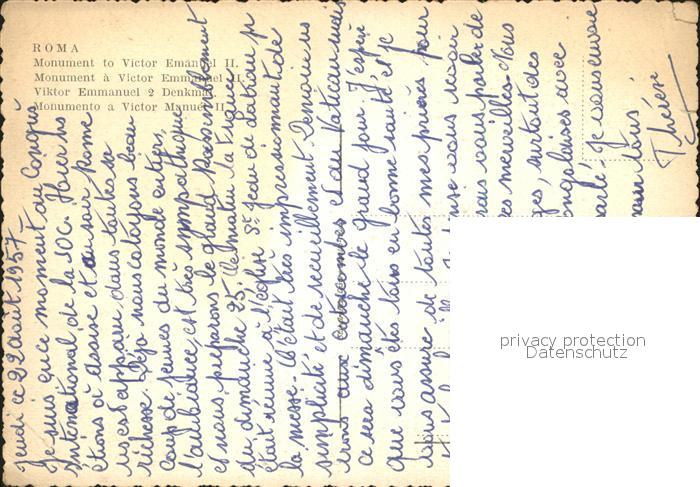 ROMA
Monument to Victor Emanuel II.
Monument à Victor Emmanuel II.
Viktor Emmanuel 2 Denkmal
Monumento a Victor Manuel II
Jeudi ce 22 août 1957
Je suis en ce moment au Congrès
International de la JOC. Hier ns
étions à Assise et au soir Rome
ns est apparue dans toute sa
richesse. Déjà nous côtoyons beau
coup de jeunes du monde entier,
l'ambiance est très sympathique
et nous préparons le grand Rassemblement
du dimanche 25. Ce matin la
était réunie à l'église St Jean de Latran p
la messe. C'était très impressionnant de
simplicité et de recueillement. Demain ns
irons aux catacombes et au Vatican mais
ce sera dimanche le grand jour. J'espère
que vous êtes tous en bonne santé et je
vous assure de toutes mes prières pour
vous revoir
vous parler de
ces merveilles. Nous
surtout des
avec
Je vous envoie
tous
Thérèse
privacy protection
Datenschutz